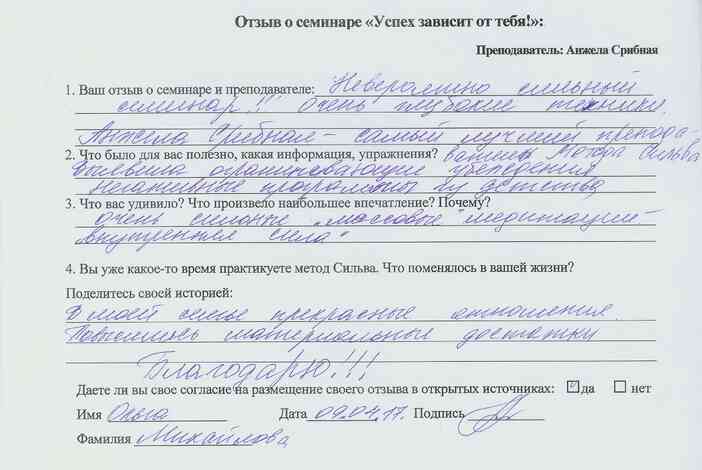 Отзыв о семинаре «Успех зависит от тебя!»:
Преподаватель: Анжела Срибная
1. Ваш отзыв о семинаре и преподавателе: Невероятно сильный
семинар!!! Очень глубокие техники.
Анжела Срибная – самый лучший препода-
2. Что было для вас полезно, какая информация, упражнения? Метода Сильва
Выявила ограничивающие убеждения
Негативные программы из детства
3. Что вас удивило? Что произвело наибольшее впечатление? Почему?
очень сильные "массовые" медитации –
"Внутренняя сила"
4. Вы уже какое-то время практикуете метод Сильва. Что поменялось в вашей жизни?
Поделитесь своей историей:
В моей семье прекрасные отношения.
Повысились материальные достатки
Благодарю!!!
Даете ли вы свое согласие на размещение своего отзыва в открытых источниках: ☑ да ☐ нет
Имя Ольга Дата 09.04.17. Подпись
Фамилия Михайлова